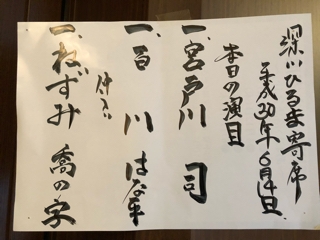 深川ひるま寄席
平成30年6月4日
本日の演目
一、宮戸川 司
一、百川 はな平
仲入り
一、ねずみ 喬の字